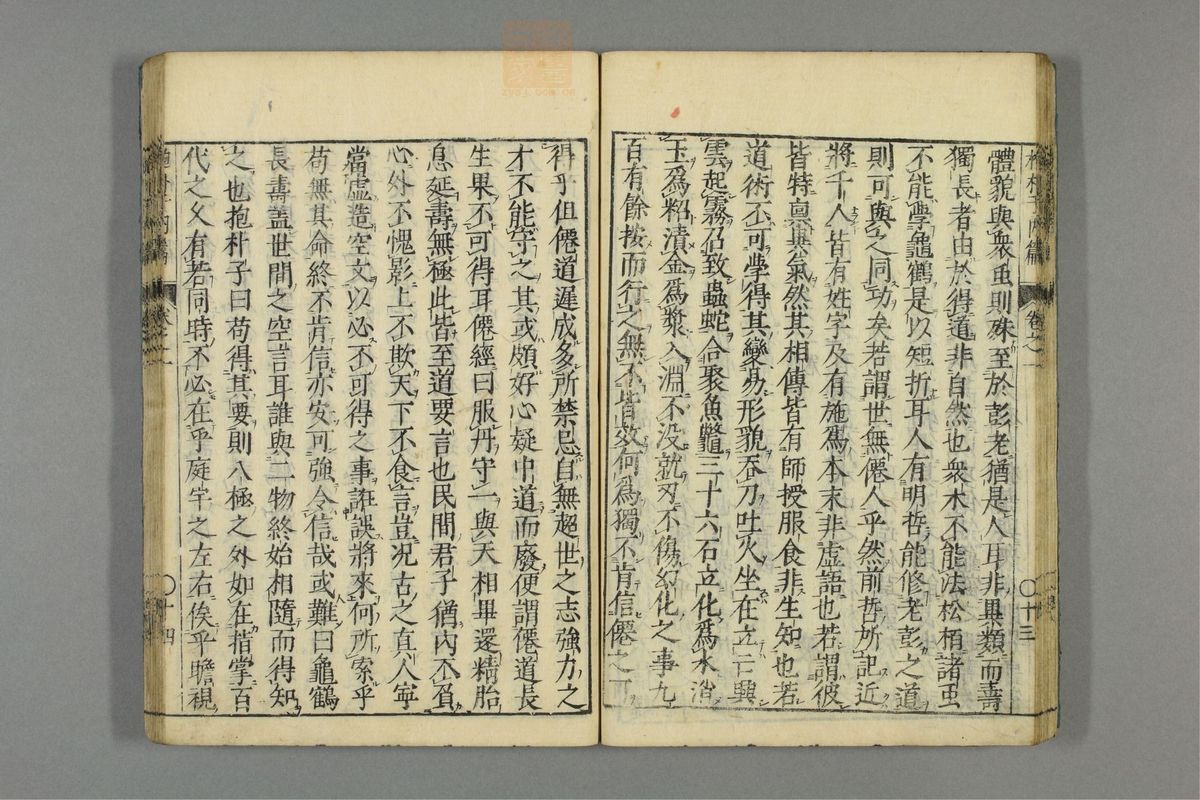 體貌與衆虫則殊至於彭老猶是人耳非異類而壽
獨長者由於得道非自然也衆木不能法松栢諸虫
不能學龜鶴是以短折耳人有明哲能修老彭之道
則可與之同功矣若謂世無僊人乎然前哲所記近
將千人皆有姓字及有施爲本末非虛語也若謂彼
皆特禀異氣然其相傳皆有師授服食非生知也若
道術不可學得其變易形貌吞刀吐火坐在立亡興
雲起霧召致蟲蛇合聚魚鼈三十六石立化爲水消
玉爲粭漬金爲漿入淵不没就刃不傷幻化之事九
百有餘按而行之無不皆效何爲獨不肯信僊之可
卷之一
〇十三
得乎但僊道遲成多所禁忌自無超世之志強力之
才不能守之其或頗好心疑中道而廢便謂僊道長
生果不可得耳僊經曰服丹守一與天相畢還精胎
息延壽無極此皆至道要言也民間君子猶內不負
心外不愧影上不欺天下不食言豈况古之真人寧
當虛造空文以必不可得之事誑誤將來何所索乎
苟無其命終不肯信亦安可強令信哉或難曰龜鶴
長壽盖世間之空言耳誰與二物終始相隨而得知
之也抱朴子曰苟得其要則八極之外如在指掌百
代之㐲有若同時不必在乎庭宇之左右俟乎瞻視
抱朴子內篇
卷之一
〇十四